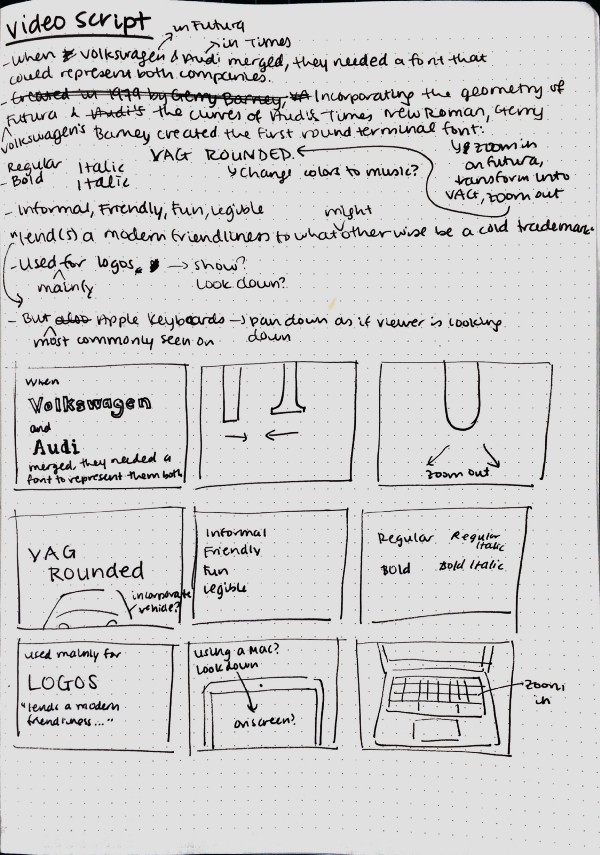 video script
in Futura
in Times
- When Volkswagen & Audi merged, they needed a font that
could represent both companies.
- Created in 1979 by Gerry Barney, VA Incorporating the geometry of
Futura & Audi's the curves of Audi's Times New Roman, Gerry
Volkswagen's
Barney created the first round terminal font:
VAG ROUNDED.
Regular Italic
- Bold Italic
Change colors to music?
zoom in
on Futura,
transform into
VAG, zoom out
- Informal, Friendly, Fun, Legible
might
"lend(s) a modern friendliness to what otherwise be a cold trademark."
- Used for logos. → show?
mainly
Look down?
- But also Apple Keyboards → pan down as if viewer is looking
most commonly seen on
down
When
Volkswagen
and
Audi
merged, they needed a
font to represent them both
zoom out
VAG
Rounded
incorporate
vehicle?
Informal
Friendly
Fun
Legible
Regular Regular
Italic
Bold Bold Italic
used mainly for
LOGOS
"lends a modern
friendliness..."
using a Mac?
Look down
onscreen?
zoom
in